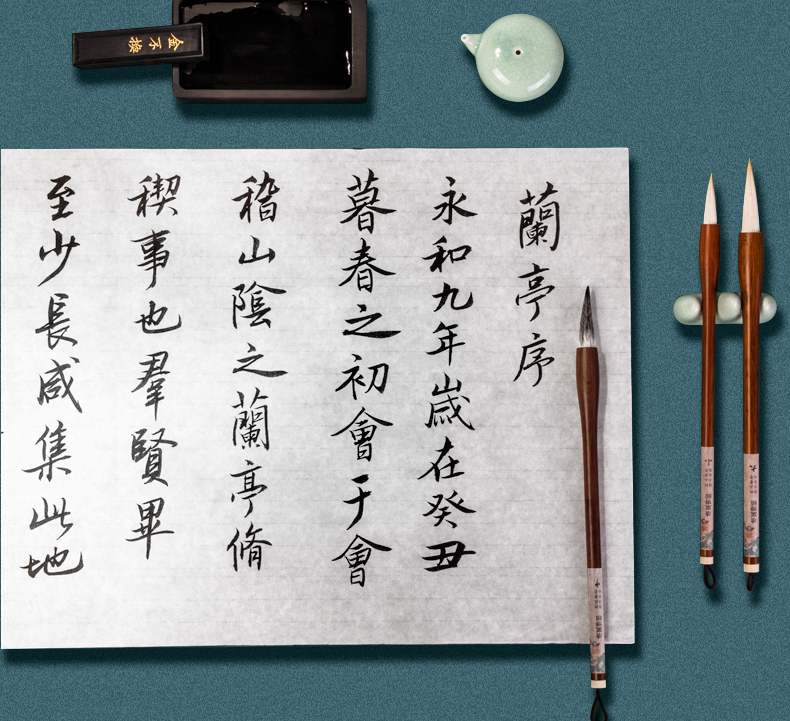 金不換
蘭亭序
永和九年歲在癸丑
暮春之初會于會
稽山陰之蘭亭脩
稧事也羣賢畢
至少長咸集此地